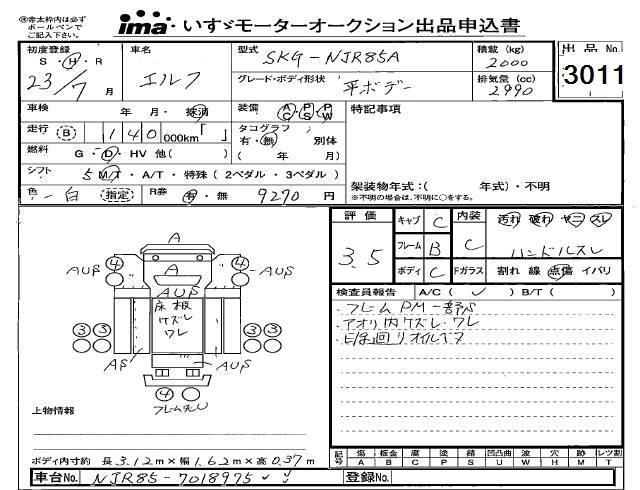 ㊟赤太枠内は必ず
ボールペンで
ご記入下さい。
ima いすゞモーターオークション出品申込書
初度登録
S・H・R
23/7 月
車名
エルフ
型式
SKG-NJR85A
グレード・ボディ形状
平ボデー
積載 (kg)
2000
排気量 (cc)
2990
出品 No.
3011
車検 年 月・抹消
走行 B 140 000km「 」
燃料 G・D・HV 他( )
シフト 5 M/T・A/T・特殊(2ペダル・3ペダル)
色 白 指定 R券 有・無 9270 円
装備 AC PS PW
タコグラフ
有・無 別体
( 年 月)
特記事項
架装物年式:( 年式)・不明
※不明の場合は、不明に○をする。
評価
3.5
キャブ C
フレーム B
ボディ C
内装 C
Fガラス
汚れ 破れ ヤニ スレ
ハンドルスレ
割れ 線 点傷 イバリ
検査員報告 A/C( ✓ ) B/T( )
・フレームPM一部心
・アオリ内ケズレ・ワレ
A
AUS 4 A 4 AUS
AUS
床板
ケズレ
ワレ
3 3 3 3
AS AUS
4
上物情報
ボディ内寸約 長3.12m×幅1.62m×高0.37m
車台No. NJR85-7018975
登録No.
記号 傷 板金 腐 塗 錆 凹凸曲 波 穴 跡 レツ割
A B C P S U W H M T